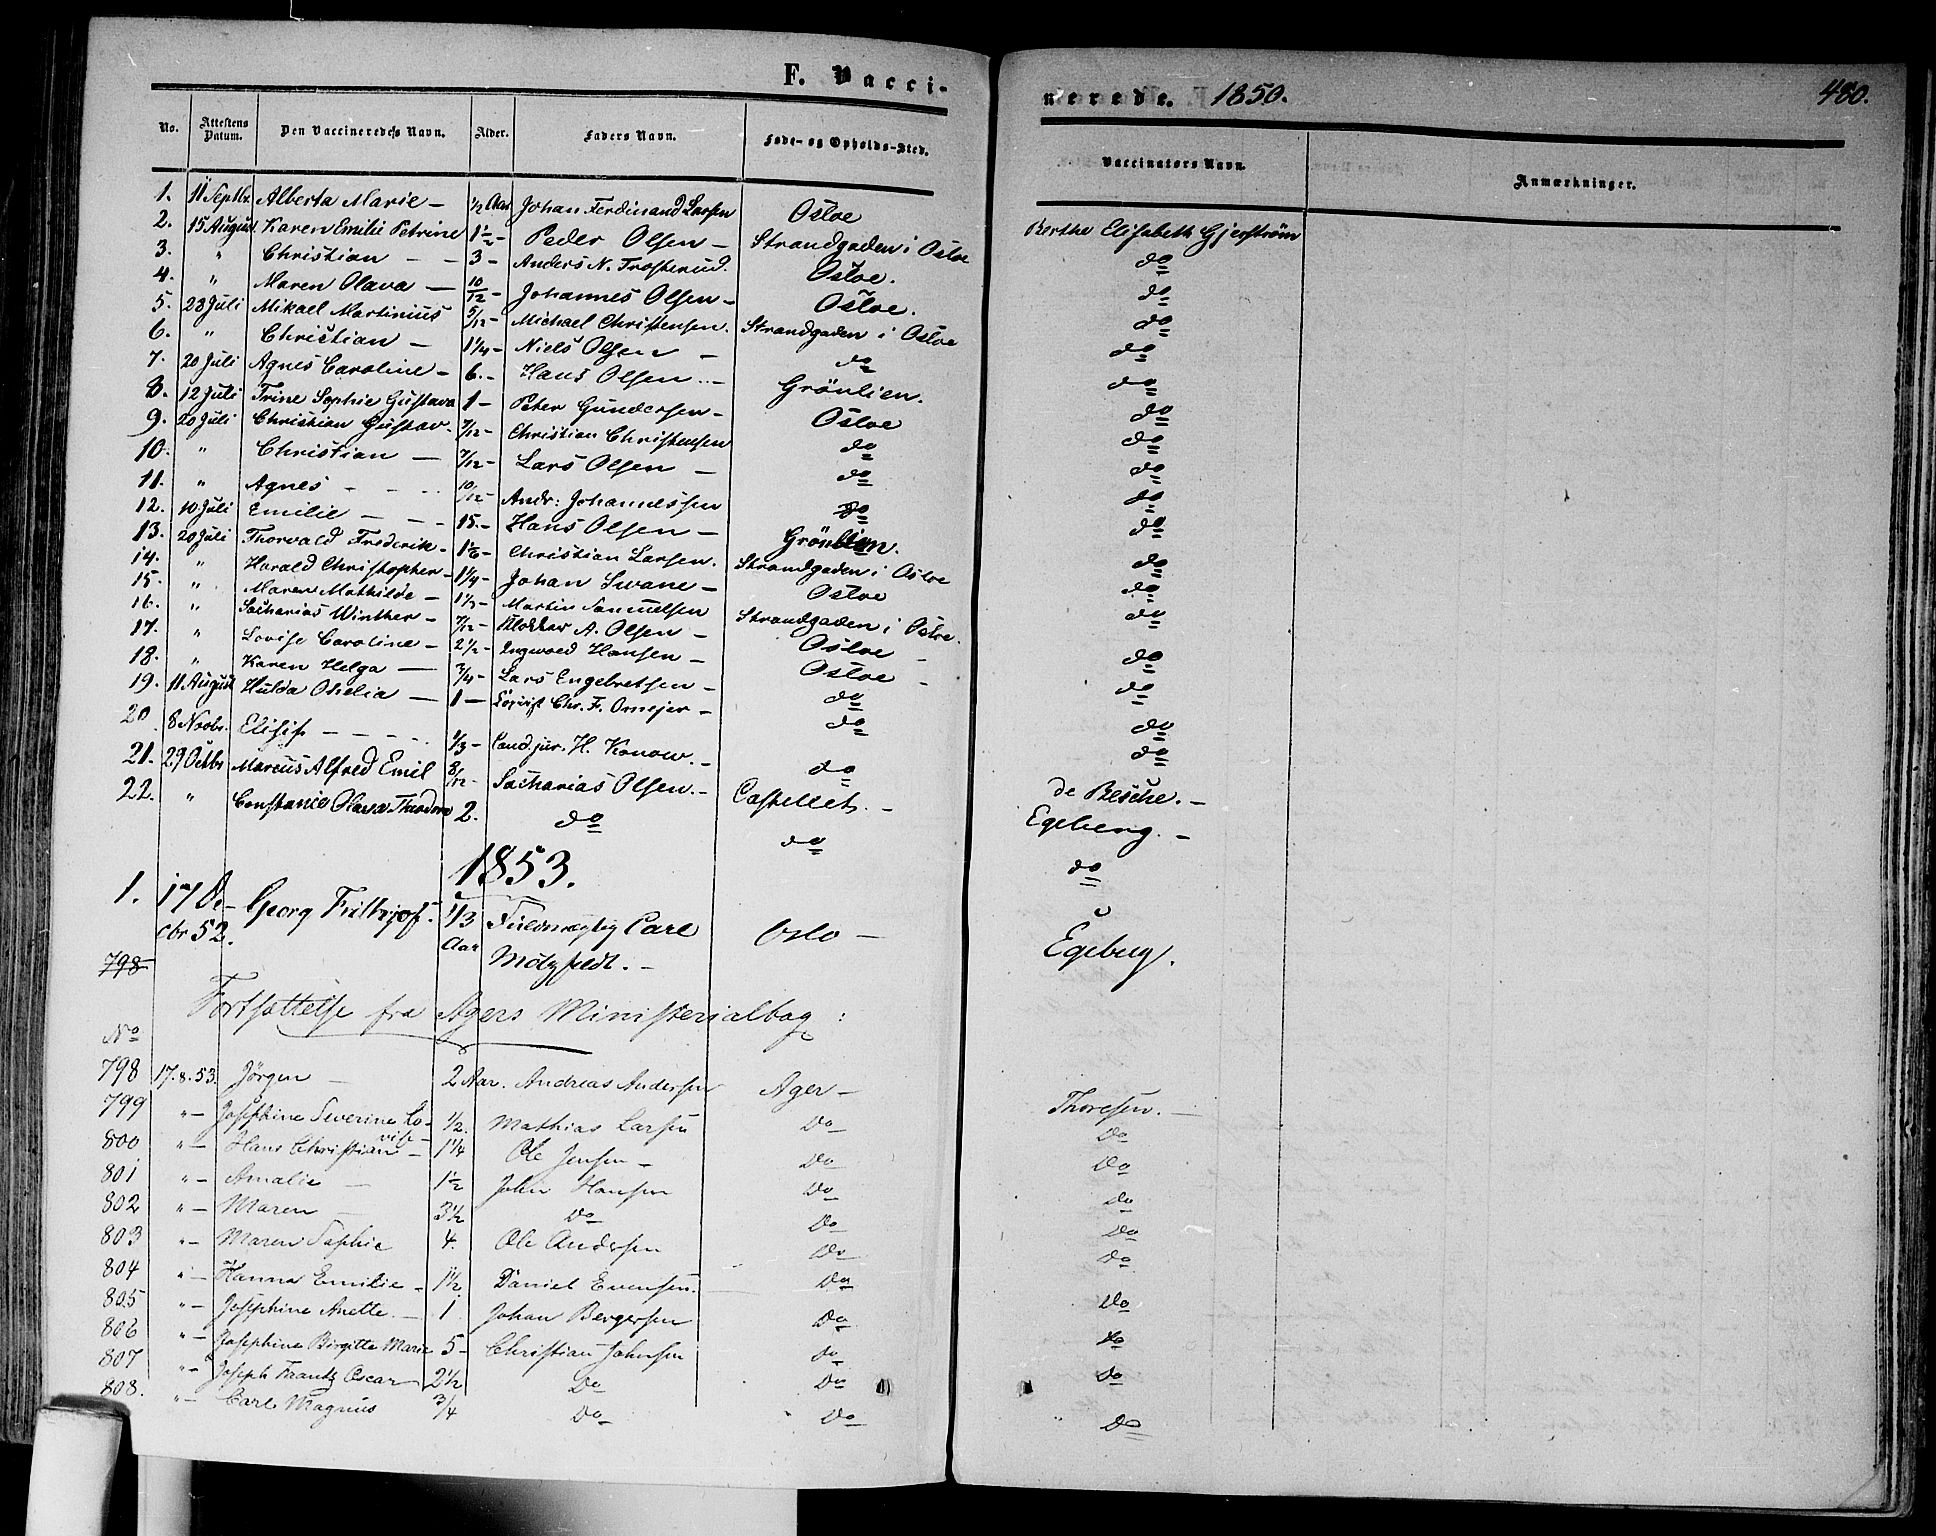 F. Vacci-
nerede. 1850.
480.
No. Attestens Datum. Den Vaccineredes Navn. Alder. Faders Navn. Føde- og Opholds-Sted. Vaccinators Navn. Anmærkninger.
1. 11 Septbr. Alberta Marie – ½ Aar Johan Ferdinand Larsen Osloe Berthe Elisabeth Gjerstrøm
2. 15 August Karen Emilie Petrine 1½ – Peder Olsen – Strandgaden i Osloe do
3. " Christian – – 3 – Anders N. Trosterud. Osloe. do
4. " Maren Olava – 10/12 – Johannes Olsen – Osloe. do
5. 23 Juli Mikael Martinius 5/12 – Michael Christensen. Strandgaden i Osloe do
6. " Christian – 1¼ – Niels Olsen – do do
7. 20 Juli Agnes Caroline – 6. – Hans Olsen – Grönlien. do
8. 12 Juli Trine Sophie Gustava 1 – Peter Gundersen – Osloe do
9. 20 Juli Christian Gustav. 7/12 – Christian Christensen do do
10. " Christian – 7/12 – Lars Olsen – do do
11. " Agnes – – 10/12 – Andr: Johannessen do do
12. 10 Juli Emilie – – – 15. – Hans Olsen – Grönlien. do
13. 20 Juli Thorvald Frederik – Christian Larsen. Strandgaden i Osloe do
14. " Harald Christopher – 1¼ – Johan Svane – Osloe do
15. " Maren Mathilde – 1⅓ – Martin Samuelsen Strandgaden i Osloe. do
16. " Sacharias Winther – 7/12 – Klokker A. Olsen – Osloe – do
17. " Lovise Caroline – 2½ – Ingwald Hansen – Osloe – do
18. " Karen Helga – ¾ – Lars Engebretsen – do do
19. 11 August Hulda Ofielia – 1 – Chr. F. Omejer – do do
20. 8 Novbr. Elisif – – – – ⅓ – Cand. jur. H. Konow. – do de Besche. –
21. 29 Octbr Marcus Alfred Emil 8/12 – Sacharias Olsen. – Castellet. – Egeberg. –
22. " Constance Olava Theodora 2. do do do
1853.
1. 17 De-
cbr 52. Georg Frithjof. ⅓
Aar Fuldmægtig Carl
Motzfeldt. – Oslo – Egeberg.
798
Fortsættelse fra Agers Ministerialbog:
No
798 17.8.53. Jörgen – 2 Aar. Andreas Andersen Ager – Thoresen. –
799 " – Josephine Severine Lo-
vise – ½. Mathias Larsen Do Do
800 " – Hans Christian – 1¼ Ole Jensen – Do Do
801 " – Amalie – 1½ John Hansen Do Do
802 " – Maren – 3½ Do Do Do
803 " – Maren Sophie 4. Ole Andersen Do Do
804 " – Hanna Emilie – 1½. Daniel Evensen. Do Do
805 " – Josephine Anette. – 1 Johan Bergersen Do Do
806 " – Josephine Birgitte Marie 5 – Christian Johnsen do Do
807 " – Joseph Frantz Oscar 2½ Do Do Do
808. " – Carl Magnus ¾ Do Do